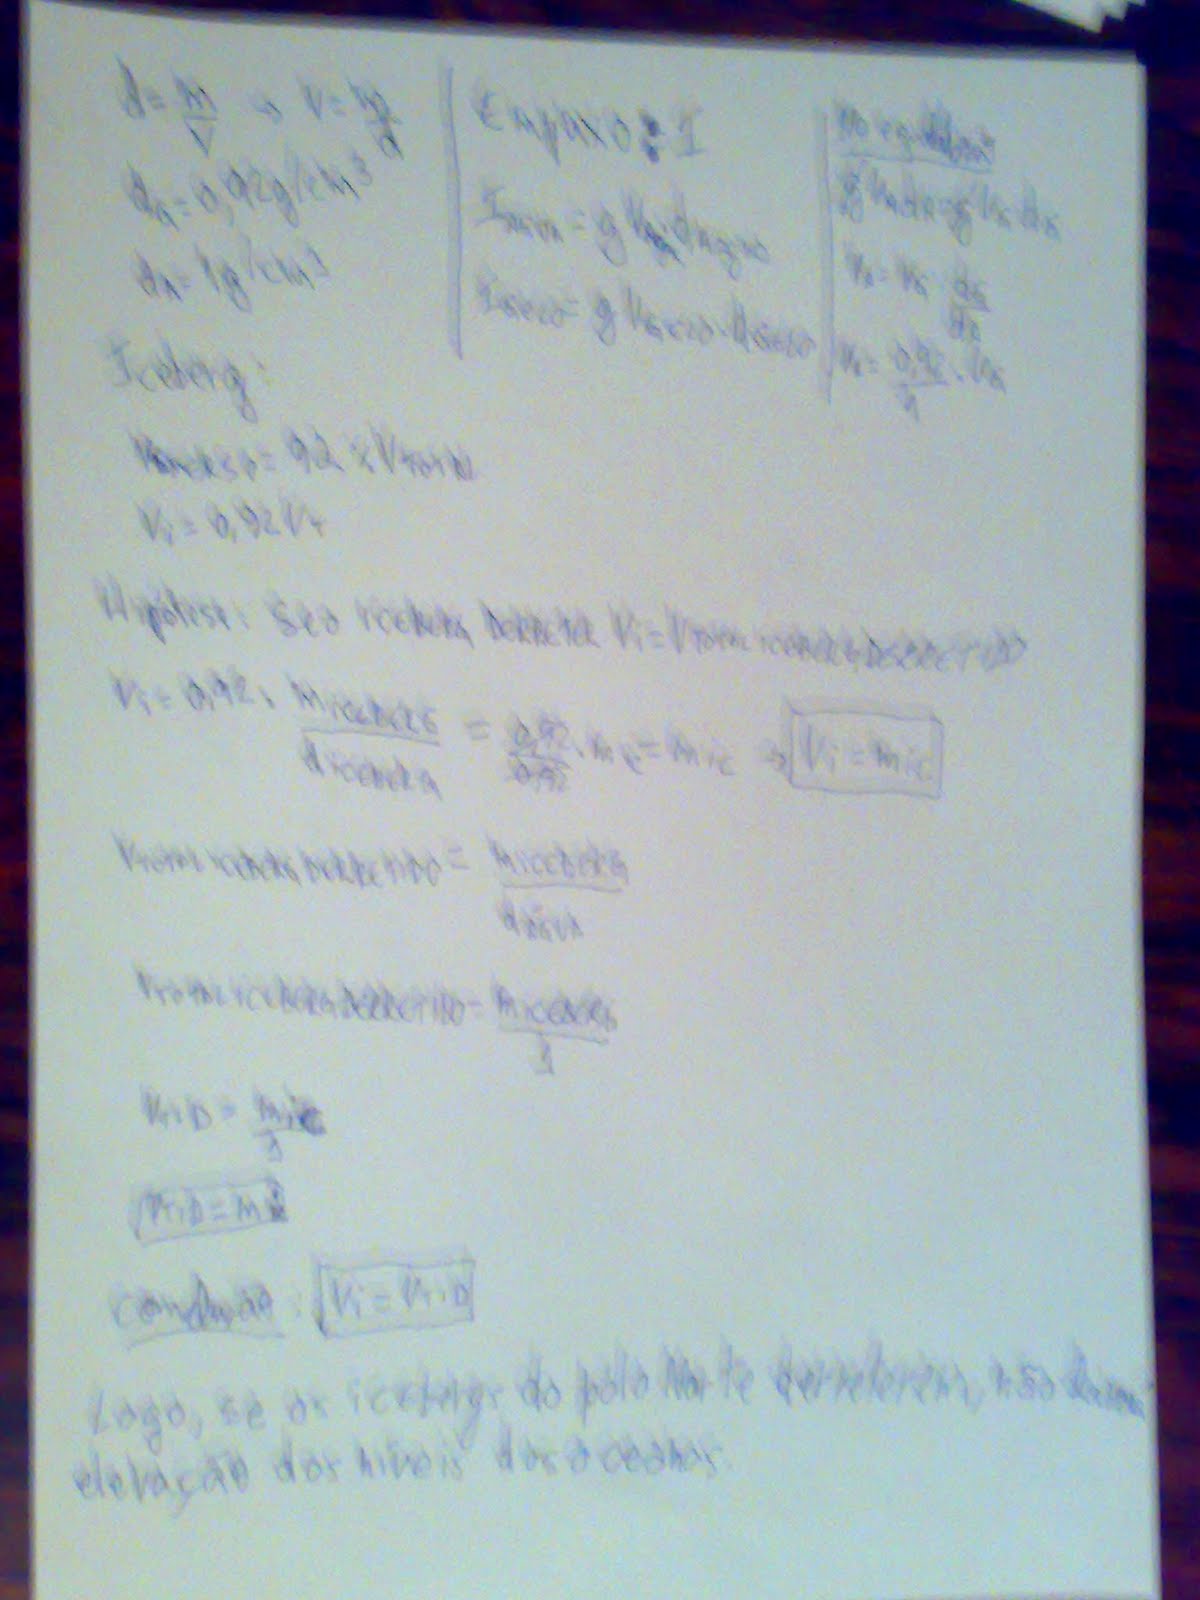 d = m/V → V = m/d
dG = 0,92g/cm³
dA = 1g/cm³
Empuxo: I
= g
= g
No equilíbrio
VA = VG dG/dA
VA = 0,92/1 . VG
Iceberg:
Vimerso = 92 % Vtotal
Vi = 0,92 VT
Hipótese: Se o iceberg derreter Vi = Vtotal iceberg derretido
Vi = 0,92 . miceberg/diceberg = 0,92/0,92 . mic = mic → Vi = mic
Vtotal iceberg derretido = miceberg/dágua
Vtotal iceberg derretido = miceberg/1
VTiD = mic/1
VTiD = mic
Conclusão: Vi = VTiD
Logo, se os icebergs do polo Norte derreterem, não
elevação dos níveis dos oceanos.